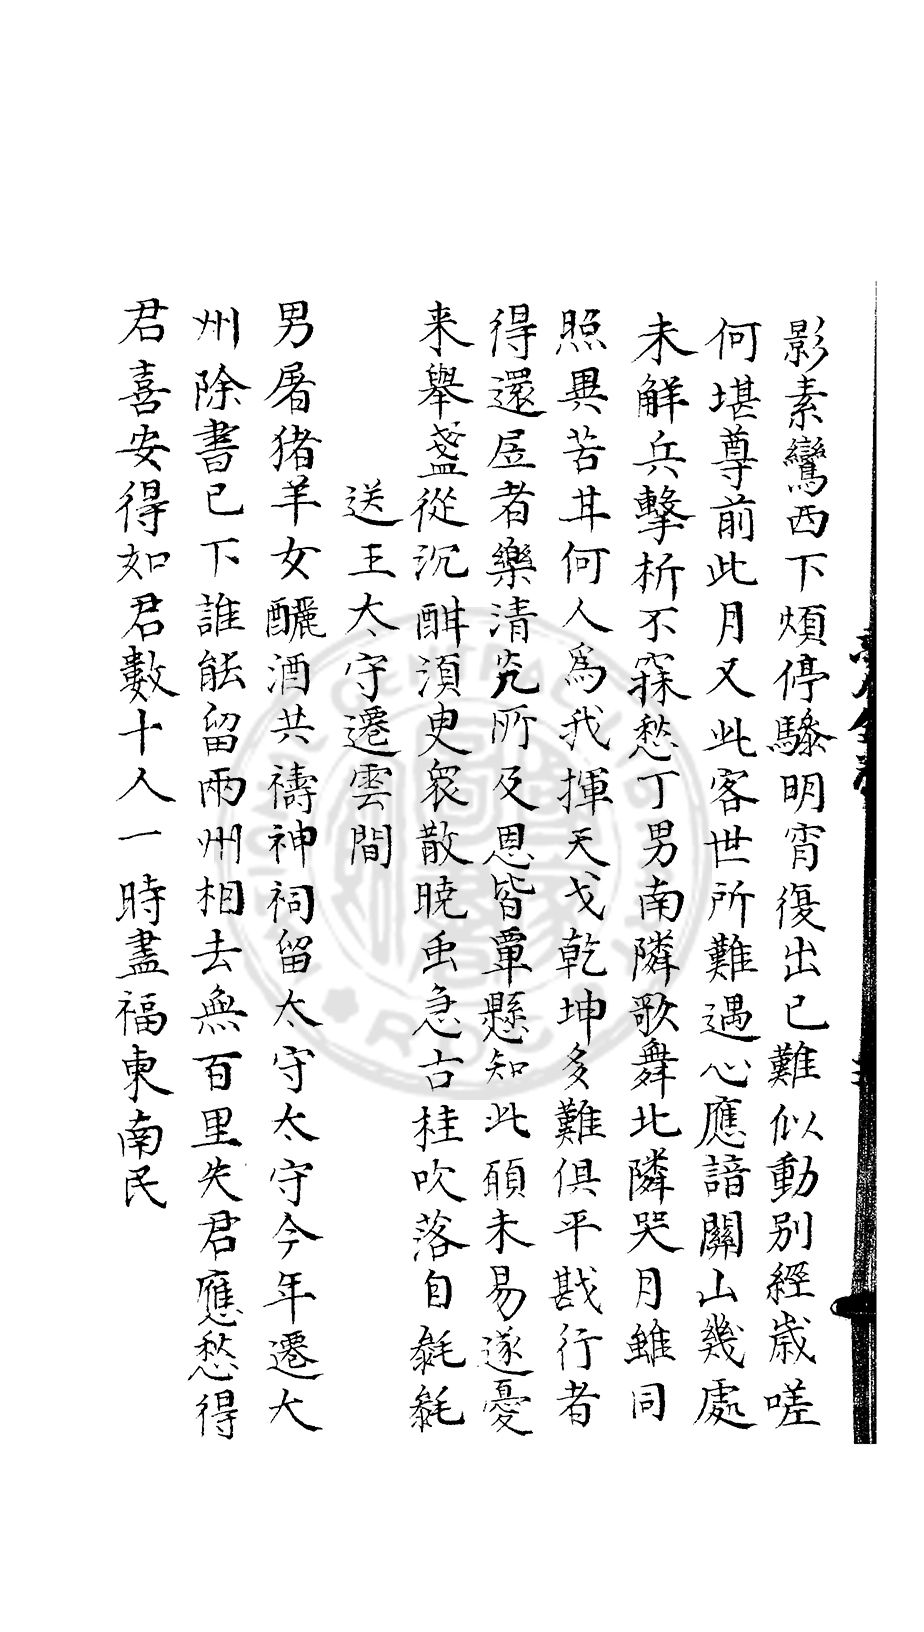 影素鸞西下煩停驂明宵復出已難似動別經歲嗟
何堪尊前此月又此客世所難遇心應諳關山幾處
未解兵擊柝不寐愁丁男南隣歌舞北隣哭月雖同
照異苦甘何人為我揮天戈乾坤多難俱平戡行者
得還居者樂清光所及恩皆覃懸知此願未易遂憂
来舉盞從沉酣須臾衆散曉䖝急古桂吹落自毿毿
送王太守遷雲間
男屠猪羊女釃酒共禱神祠留太守太守今年遷大
州除書已下誰能留兩州相去無百里失君應愁得
君喜安得如君數十人一時盡福東南民